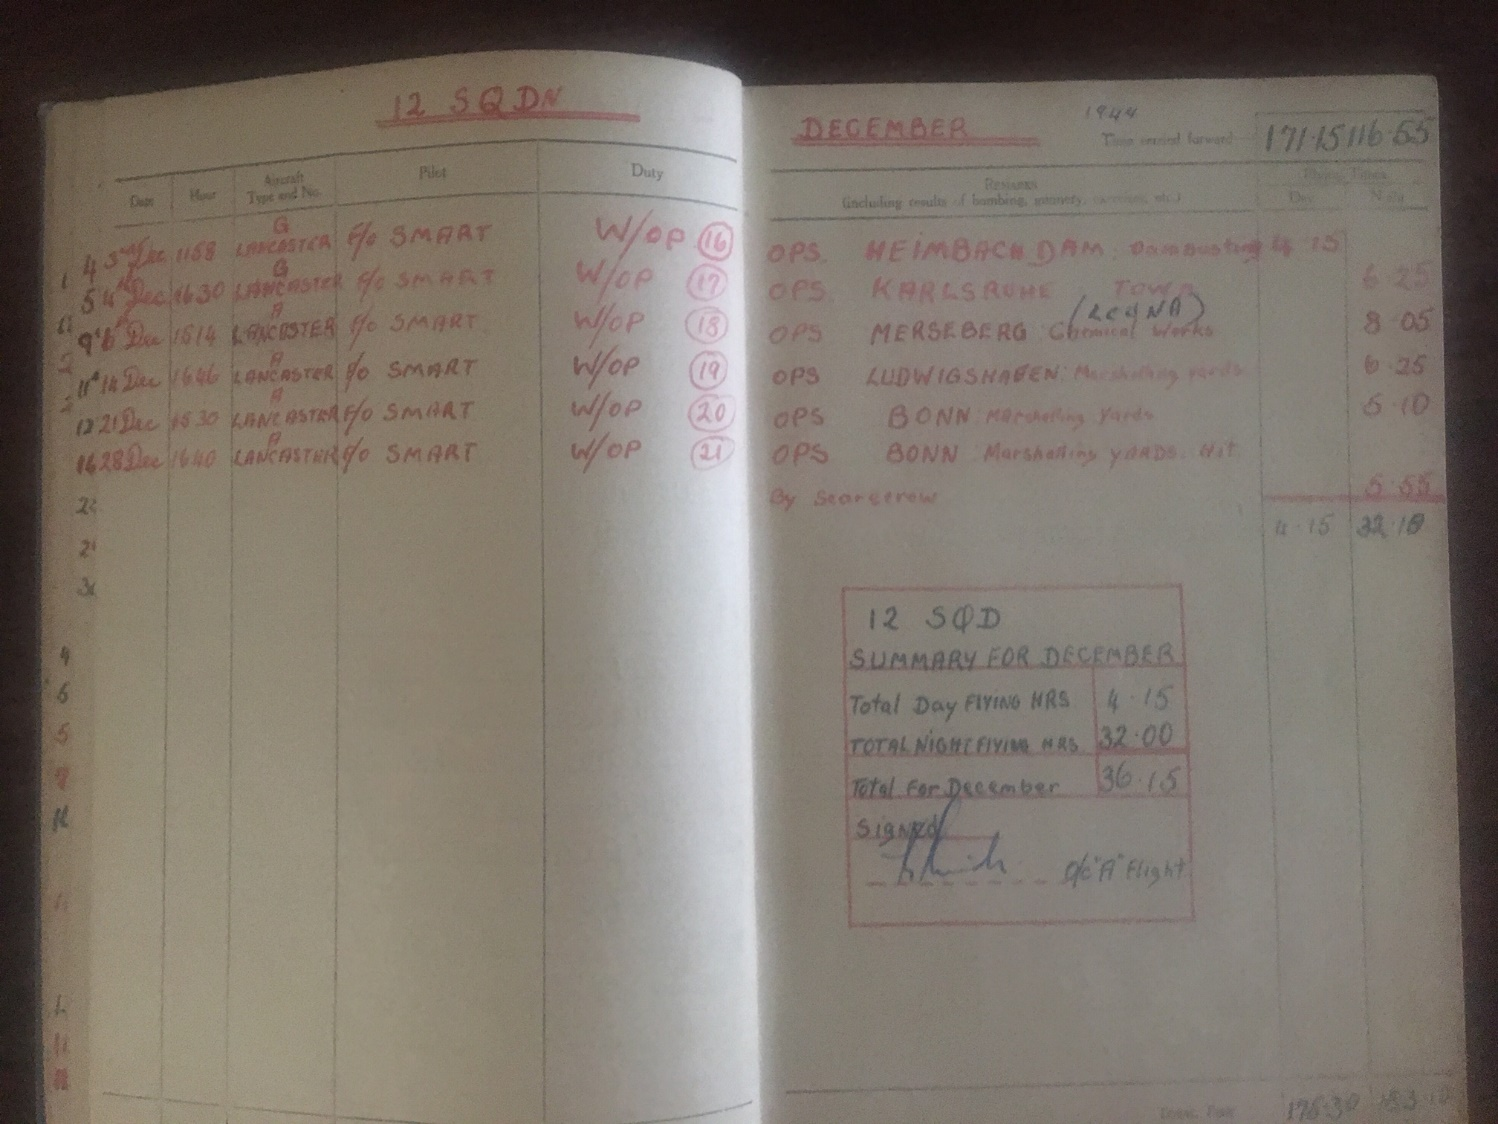 12 SQDN
Date Hour Aircraft Type and No. Pilot Duty
3rd Dec 1158 G LANCASTER F/O SMART W/OP 16
4th Dec 1630 G LANCASTER F/O SMART W/OP 17
6th Dec 1614 A LANCASTER F/O SMART W/OP 18
14 Dec 1646 A LANCASTER F/O SMART W/OP 19
21 Dec 1530 A LANCASTER F/O SMART W/OP 20
28 Dec 1640 A LANCASTER F/O SMART W/OP 21
DECEMBER 1944
Time carried forward 171.15 116.55
REMARKS Flying Times
(including results of bombing, gunnery, exercises, etc.) Day Night
OPS. HEIMBACH DAM. Dambusting 4.15
OPS. KARLSRUHE TOWN 6.25
(LeuNA)
OPS MERSEBERG Chemical Works 8.05
OPS LUDWIGSHAFEN. Marshalling yards 6.25
OPS BONN Marshalling Yards 5.10
OPS BONN Marshalling YARDS. Hit
By Scarecrow 5.55
4.15
12 SQD
SUMMARY FOR DECEMBER
Total Day FLYING HRS 4.15
TOTAL NIGHT FLYING HRS 32.00
Total For December 36.15
SIGNED
O/C "A" Flight